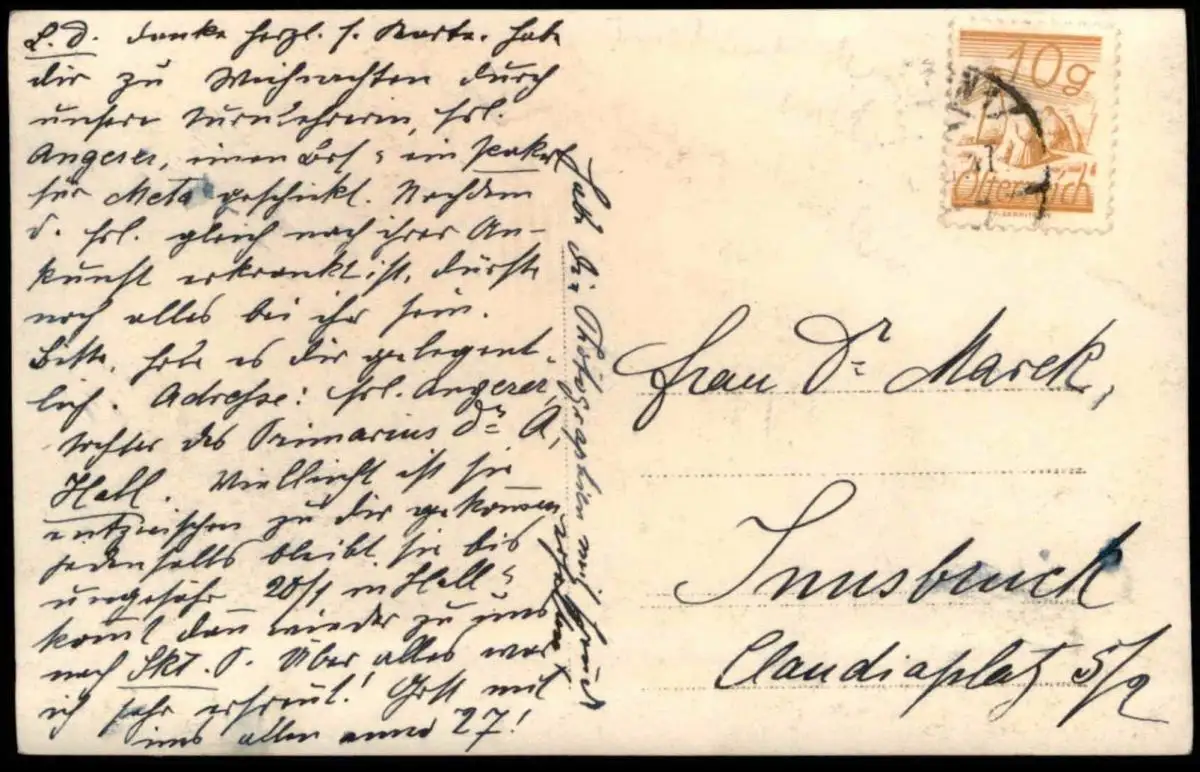 L. D. danke herzl. f. Karte. Habe
dir zu Weihnachten durch
unsere Turnlehrerin, Frl.
Angerer, einen Brf. & ein Paket
für Meta geschickt. Nachdem
d. Frl. gleich nach ihrer An-
kunft erkrankt ist, dürfte
noch alles bei ihr sein.
Bitte, hole es dir gelegent-
lich. Adresse: Frl. Angerer,
Tochter des Primarius Dr A,
Hall. Vielleicht ist sie
entzwischen zu dir gekommen,
jedenfalls bleibt sie bis
ungefähr 20/1 in Hall &
kom̅t dan̅ wieder zu uns
nach Skt. P. Über alles war
ich sehr erfreut! Gott mit
uns allen anno 27!
Habe die Photographien mit Freude
erhalten
10g
Österreich
Frau Dr Marek,
Innsbruck
Claudiaplatz 5/2